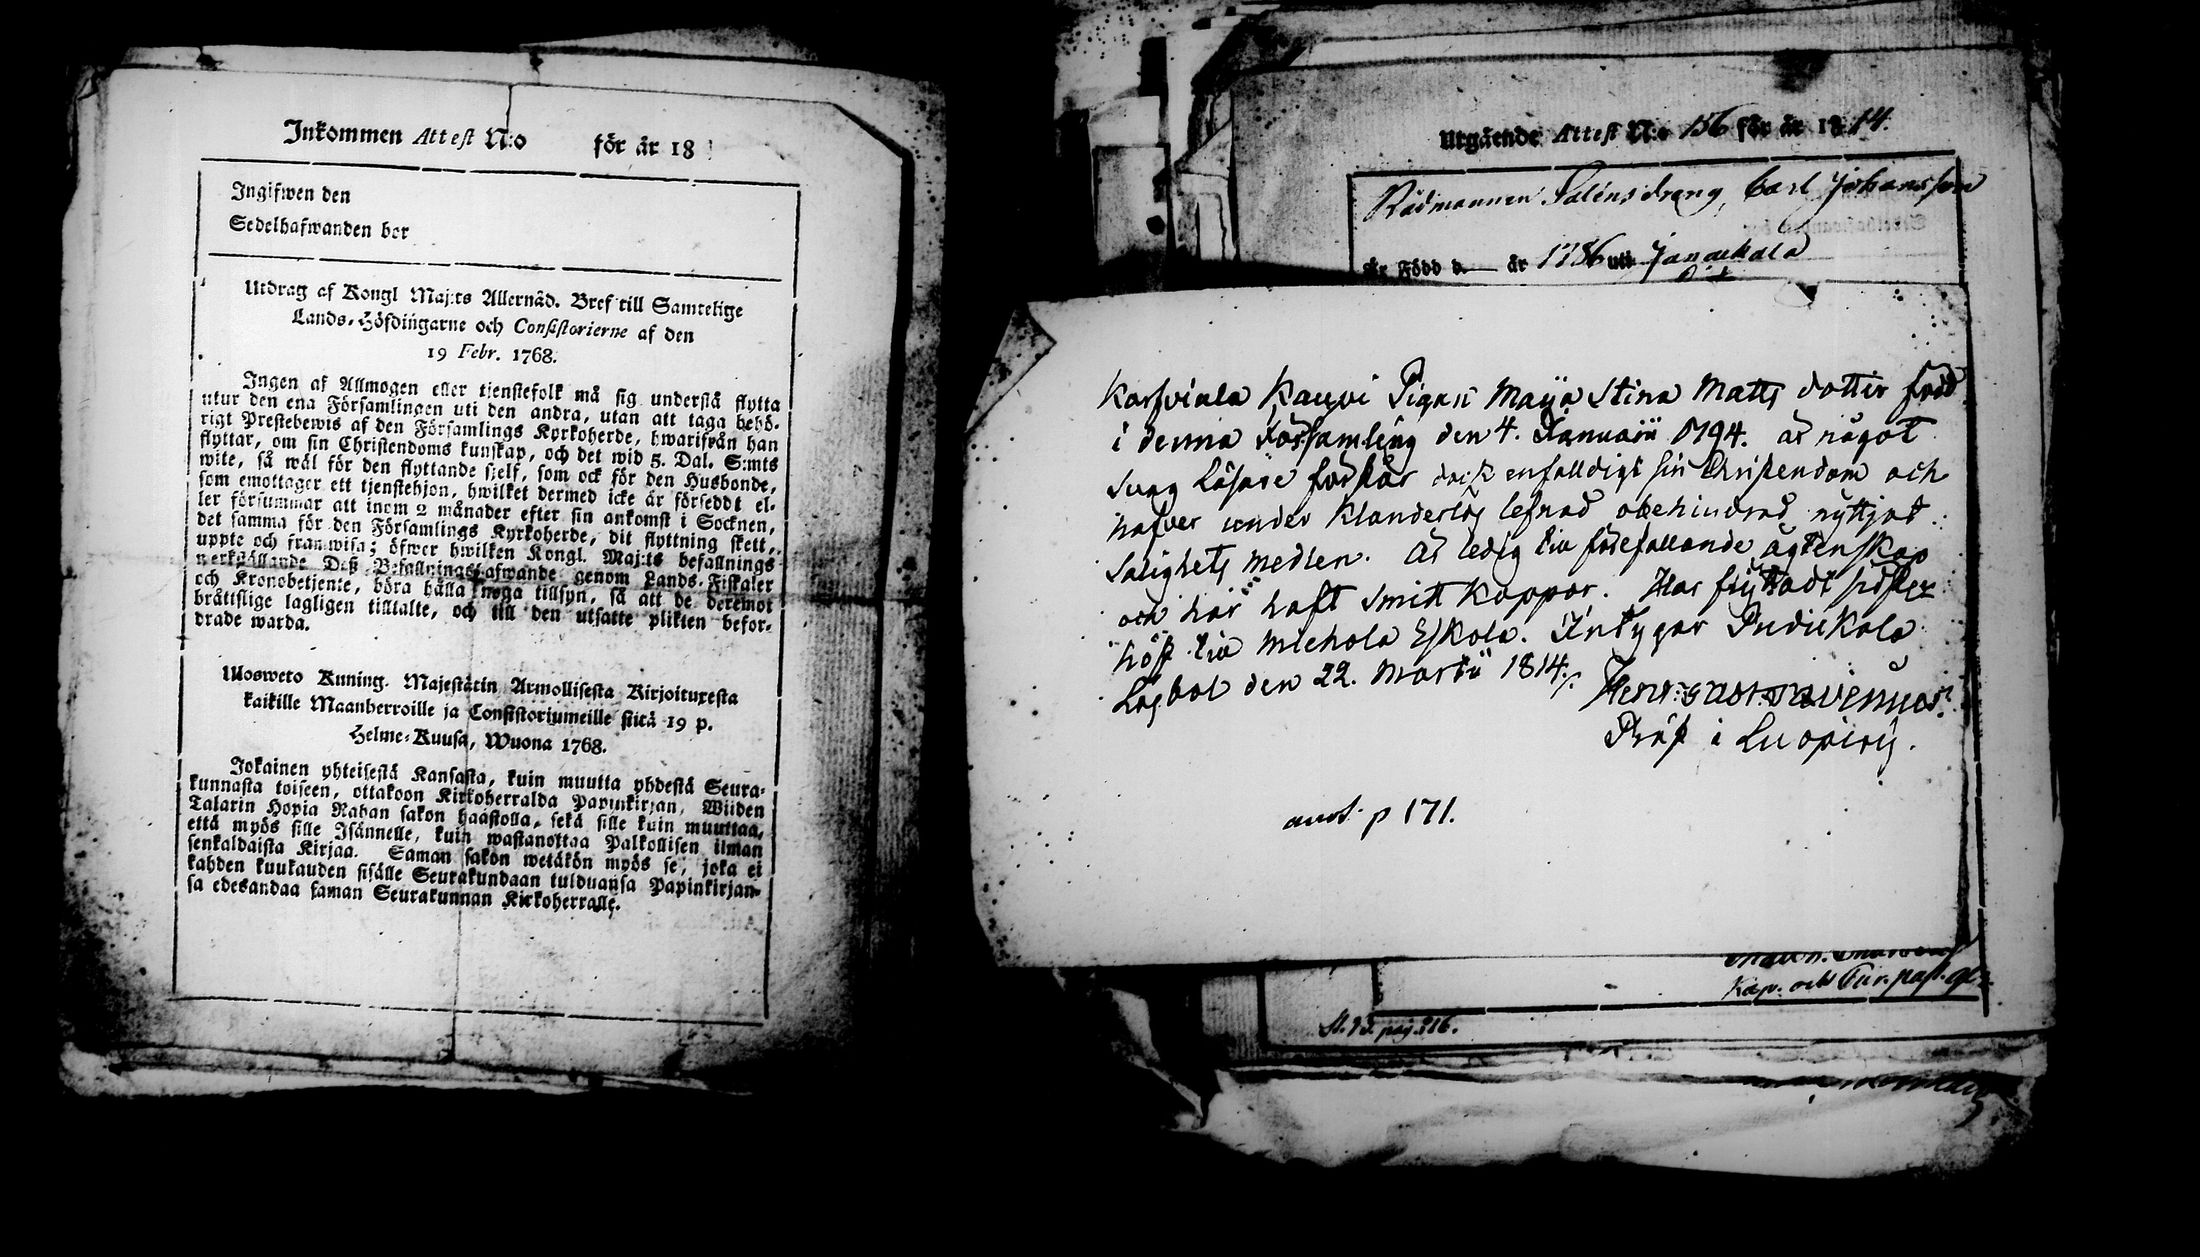 Inkommen Attest N:o för år 18
Ingifwen den
Sedelhafwanden bor
Utdrag af Kongl Maj:ts Allernåd. Bref till Samtelige
Lands-Höfdingarne och Consistorierne af den
19 Febr. 1768.
Ingen af Allmogen eller tjenstefolk må sig understå flytta
utur den ena Församlingen uti den andra, utan att taga behö-
rigt Prestebewis af den Församlings Kyrkoherde, hwarifrån han
flyttar, om sin Christendoms kunskap, och det wid 5. Dal. S:mts
wite, så wäl för den flyttande sjelf, som ock för den Husbonde,
som emottager ett tjenstehjon, hwilket dermed icke är försedt el-
ler försummar att inom 2 månader efter sin ankomst i Socknen,
det samma för den Församlings Kyrkoherde, dit flyttning skett,
uppte och framwisa; öfwer hwilken Kongl. Maj:ts befallnings
werkställande Deß Befallningshafwande genom Lands-Fiskaler
och Kronobetjente, böra hålla noga tillsyn, så att de deremot
bråttslige lagligen tilltalte, och till den utsatte plikten befor-
drade warda.
Ulosweto Kuning. Majestätin Armollisesta Kirjoituxesta
kaikille Maanherroille ja Consistoriumeille siitä 19 p.
Helme-Kuusa, Wuona 1768.
Jokainen yhteisestä Kansasta, kuin muutta yhdestä Seura-
kunnasta toiseen, ottakoon Kirkoherralda Papinkirjan, Wiiden
Talarin Hopia Rahan sakon haastolla, sekä sille kuin muuttaa,
että myös sille Isännelle, kuin wastanottaa Palkollisen ilman
senkaldaista Kirjaa. Saman sakon wetäkön myös se, joka ei
kahden kuukauden sisälle Seurakundaan tulduansa Papinkirjan-
sa edesandaa saman Seurakunnan Kirkoherralle.
Utgående Attest N:o 156 för år 1814.
Rådmannen Saléns dräng, Carl Johansson
är Född d. — år 1786 uti Janakkala
Karsviala Kauvi Pigan Maija Stina Matts dotter född
i denna Församling den 4. Januarii 1794. är något
svag läsare förstår dock enfalldigt sin Christendom och
hafver under klanderlös lefnad obehindrad nyttjat
salighets medlen. Är ledig till förefallande ägtenskap
och har haft Smitt koppor. Har flyttadt sistle
höst till Miehola Eskola. Intygar Pudiekala
Lagbol den 22. Martii 1814.
Prost i Luopiois.
anot. p 171.
Kap. och
St. 93. pag. 216.